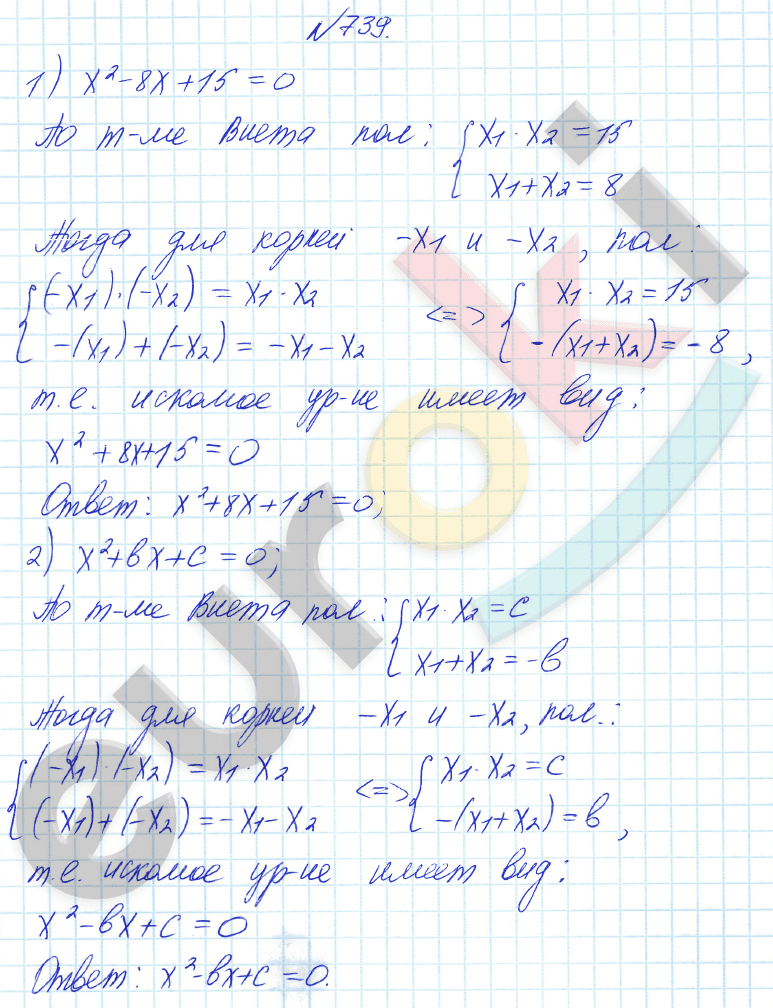 №739.
1) x² - 8x + 15 = 0
По т-ме Виета пол: { x1 · x2 = 15
x1 + x2 = 8
Тогда для корней -x1 и -x2, пол:
{ (-x1)·(-x2) = x1 · x2 <=> { x1 · x2 = 15
-(x1) + (-x2) = -x1 - x2 -(x1+x2) = -8,
т.е. искомое ур-ие имеет вид:
x² + 8x + 15 = 0
Ответ: x² + 8x + 15 = 0;
2) x² + вx + с = 0;
По т-ме Виета пол.: { x1 · x2 = с
x1 + x2 = -в
Тогда для корней -x1 и -x2, пол.:
{ (-x1)·(-x2) = x1 · x2 <=> { x1 · x2 = с
(-x1) + (-x2) = -x1 - x2 -(x1+x2) = в,
т.е. искомое ур-ие имеет вид:
x² - вx + с = 0
Ответ: x² - вx + с = 0.
euroki